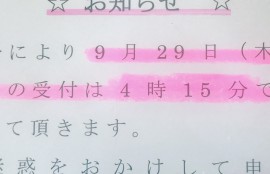 ☆ お知らせ ☆
により 9月29日(木
の受付は4時15分で
て頂きます。
惑をおかけして申